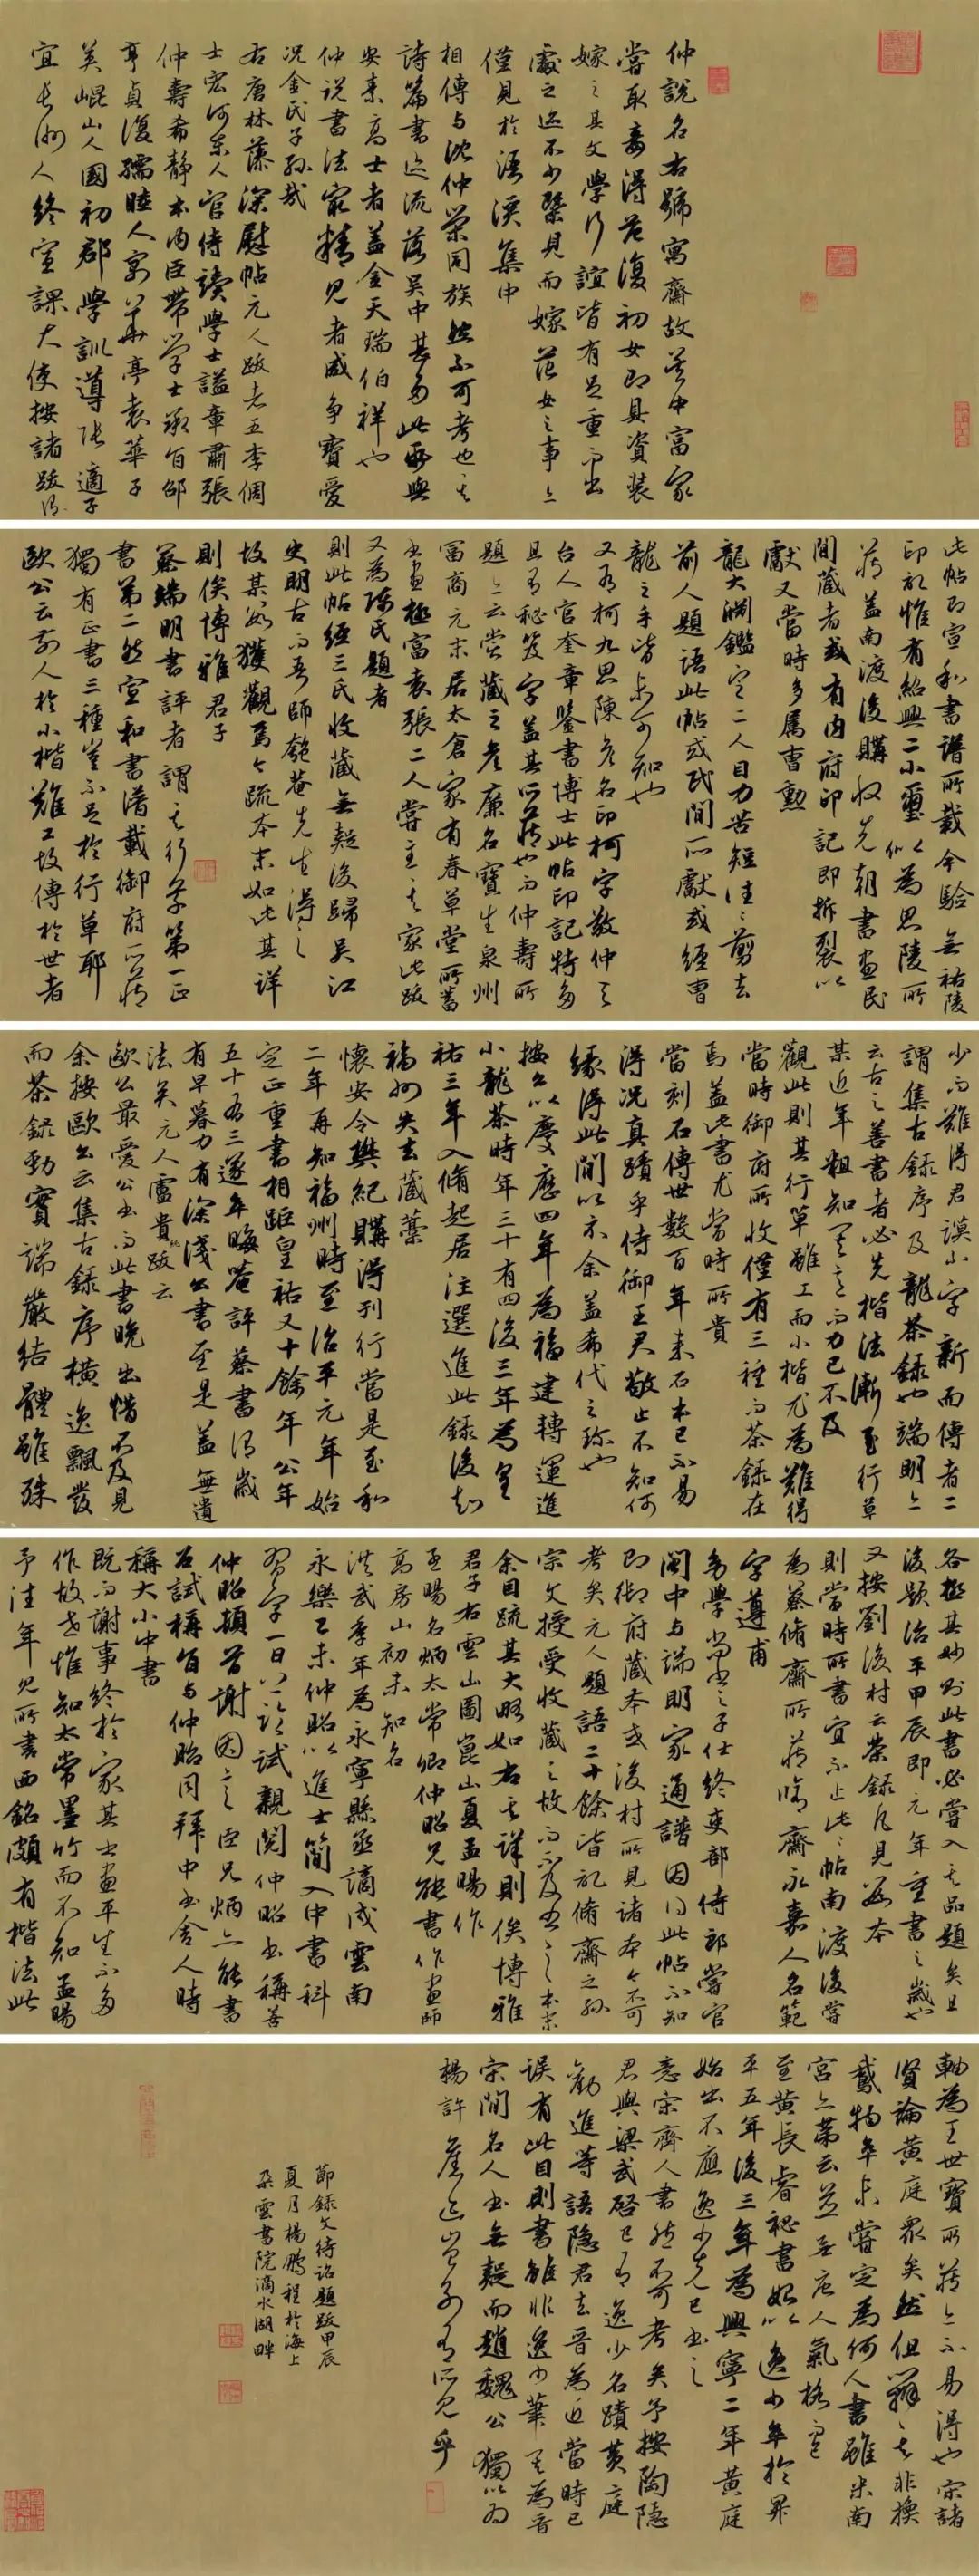 仲說名右號寓齋故吳中富家
嘗取妻得范復初女即具資裝
嫁之其文學行誼皆有足重而出
處之迹不少槩見而嫁范女之事亦
僅見於酒溪集中
相傳与沈仲榮同族然不可考也其
詩篇書迹流落吳中甚多此冊與
安素高士者蓋金天瑞伯祥也
仲說書法家精見者咸爭寶愛
況金氏子孫哉
右唐林藻深慰帖元人跋者五李倜
士宏河東人官侍讀學士諡章肅張
仲壽希靜本內臣帶學士承旨邵
亨貞復孺睦人寓華亭袁華子
英崐山人國初郡學訓導張適子
宜長洲人終宣課大使按諸跋謂
此帖即宣和書譜所載今驗無祐陵
印記惟有紹興二小璽似為思陵所
蔵蓋南渡後購收先朝書畫民
間藏者或有內府印記即拆裂以
獻又當時多属曹勲
龍大淵鑑定二人目力苦短往往剪去
前人題語此帖或民間所獻或經曹
龍之手皆未可知也
又有柯九思陳彥名印柯字敬仲天
台人官奎章鑒書博士此帖印記特多
且有秘笈字蓋其所蔵也而仲壽所
題亦云嘗藏之彥廉名寶生泉州
富商元末居太倉家有春草堂所蓄
書畫極富袁張二人嘗主其家此跋
又為陳氏題者
則此帖經三氏收藏無疑後歸吳江
史明古而吾師匏菴先生得之
故某數獲觀焉今疏本末如此其詳
則俟博雅君子
蔡端明書評者謂其行草第一正
書第二然宣和書譜載御府所蔵
獨有正書三種豈不足於行草耶
歐公云前人於小楷難工故傳於世者
少而難得君謨小字新而傳者二
謂集古錄序及龍茶錄也端明亦
云古之善書者必先楷法漸至行草
某近年粗知其意而力已不及
觀此則其行草雖工而小楷尤為難得
當時御府所收僅有三種而茶錄在
焉蓋此書尤當時所貴
當刻石傳世數百年來石本已不易
得況真蹟乎侍御王君敬止不知何
緣得此間以示余蓋希代之珍也
按公以慶歷四年為福建轉運進
小龍茶時年三十有四後三年為皇
祐三年入脩起居注選進此錄後知
福州失去藏藁
懷安令樊紀購得刊行當是至和
二年再知福州時至治平元年始
定正重書相距皇祐又十餘年公年
五十有三遂年晦菴評蔡書謂歲
有早暮力有深淺公書至是蓋無遺
法矣元人盧貴純跋云
歐公最愛公書而此書晚出惜不及見
余按歐公云集古錄序橫逸飄發
而茶錄勁實端嚴結體雖殊
各極其妙則此書必嘗入其品題矣且
後題治平甲辰即元年重書之歲也
又按劉後村云茶錄凡見數本
則當時所書宜不止此此帖南渡後嘗
為蔡脩齋所蔵脩齋永嘉人名範
字遵甫
幼學尚書之子仕終吏部侍郎嘗官
閩中与端明家通譜因得此帖不知
即御府藏本或後村所見諸本今不可
考矣元人題語二十餘皆記脩齋之孫
宗文授受收藏之故而不及書之本末
余目疏其大略如右其詳則俟博雅
君子右雲山圖崑山夏孟暘作
孟暘名炳太常卿仲昭兄能書作畫師
高房山初未知名
洪武季年為永寧縣丞謫戍雲南
永樂乙未仲昭以進士簡入中書科
習字一日上臨試親閱仲昭書稱善
仲昭頓首謝因言臣兄炳亦能書
召試稱旨与仲昭同拜中書舍人時
稱大小中書
既而謝事終於家其書畫平生不多
作故世惟知太常墨竹而不知孟暘
予往年見所書西銘頗有楷法此
軸為王世寶所蔵亦不易得也宋諸
賢論黃庭眾矣然但辨其非換
鵞物牟未嘗定為何人書雖米南
宮亦第云並無唐人氣格而已
至黃長睿秘書始以逸少卒於昇
平五年後三年為興寧二年黃庭
始出不應逸少先已書之
意宋齊人書然不可考矣予按陶隱
君與梁武啓已有逸少名蹟黃庭
勸進等語隱君去晉為近當時已
误有此目則書雖非逸少筆其為晉
宋間名人書無疑而趙魏公獨以為
楊許舊迹豈別有所見乎
節錄文待詔題跋甲辰
夏月楊鵬程於海上
朵雲書院滴水湖畔